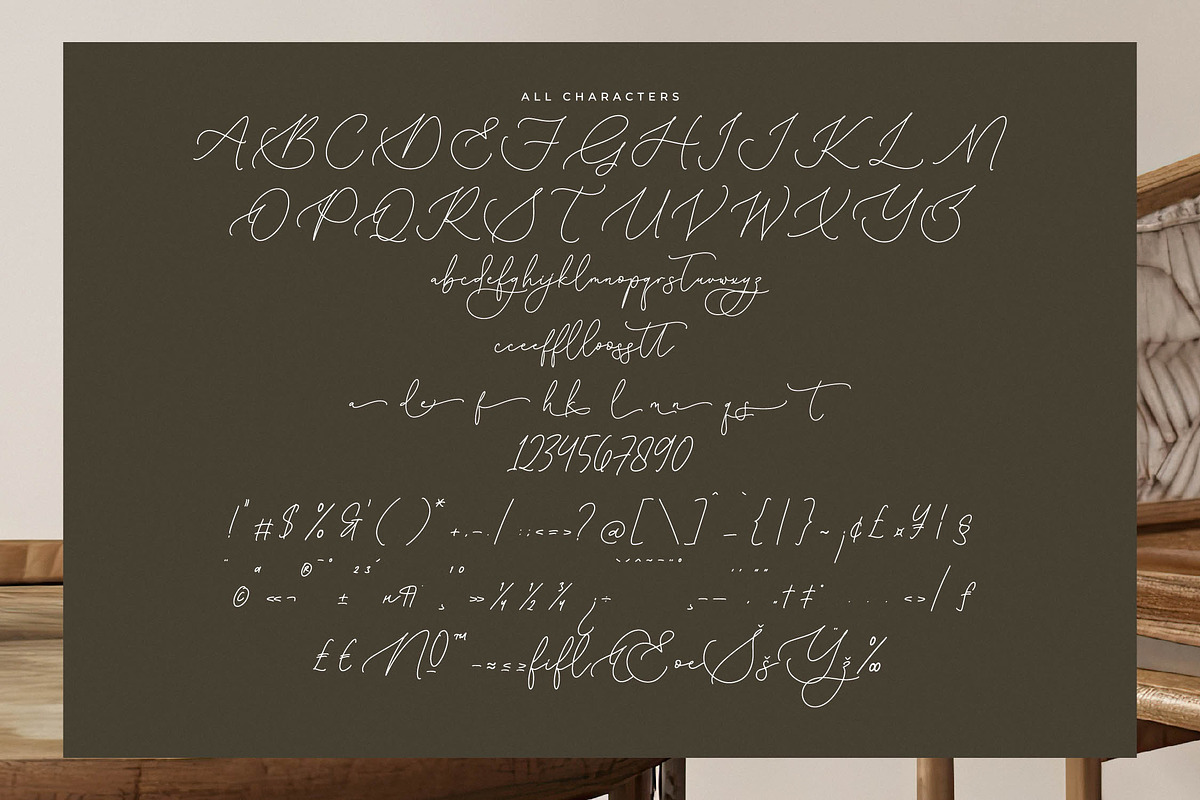 ALL CHARACTERS
ABCDEFGHIJKLMN
OPQRSTUVWXYZ
abcdefghijklmnopqrstuvwxyz
cceefflloosstt
a de f hk l mn qs t
1234567890
!"#$%&'()*+,-./:;<=>?@[\]^_`{|}~¡¢£¤¥¦§
¨ª®¯°23´10
©«¬±µ¶¸»¼½¾¿÷‚–—•„†‡…‹›⁄ƒ
₤€№™−≈≤≥fiflŒœŠšŸž‰